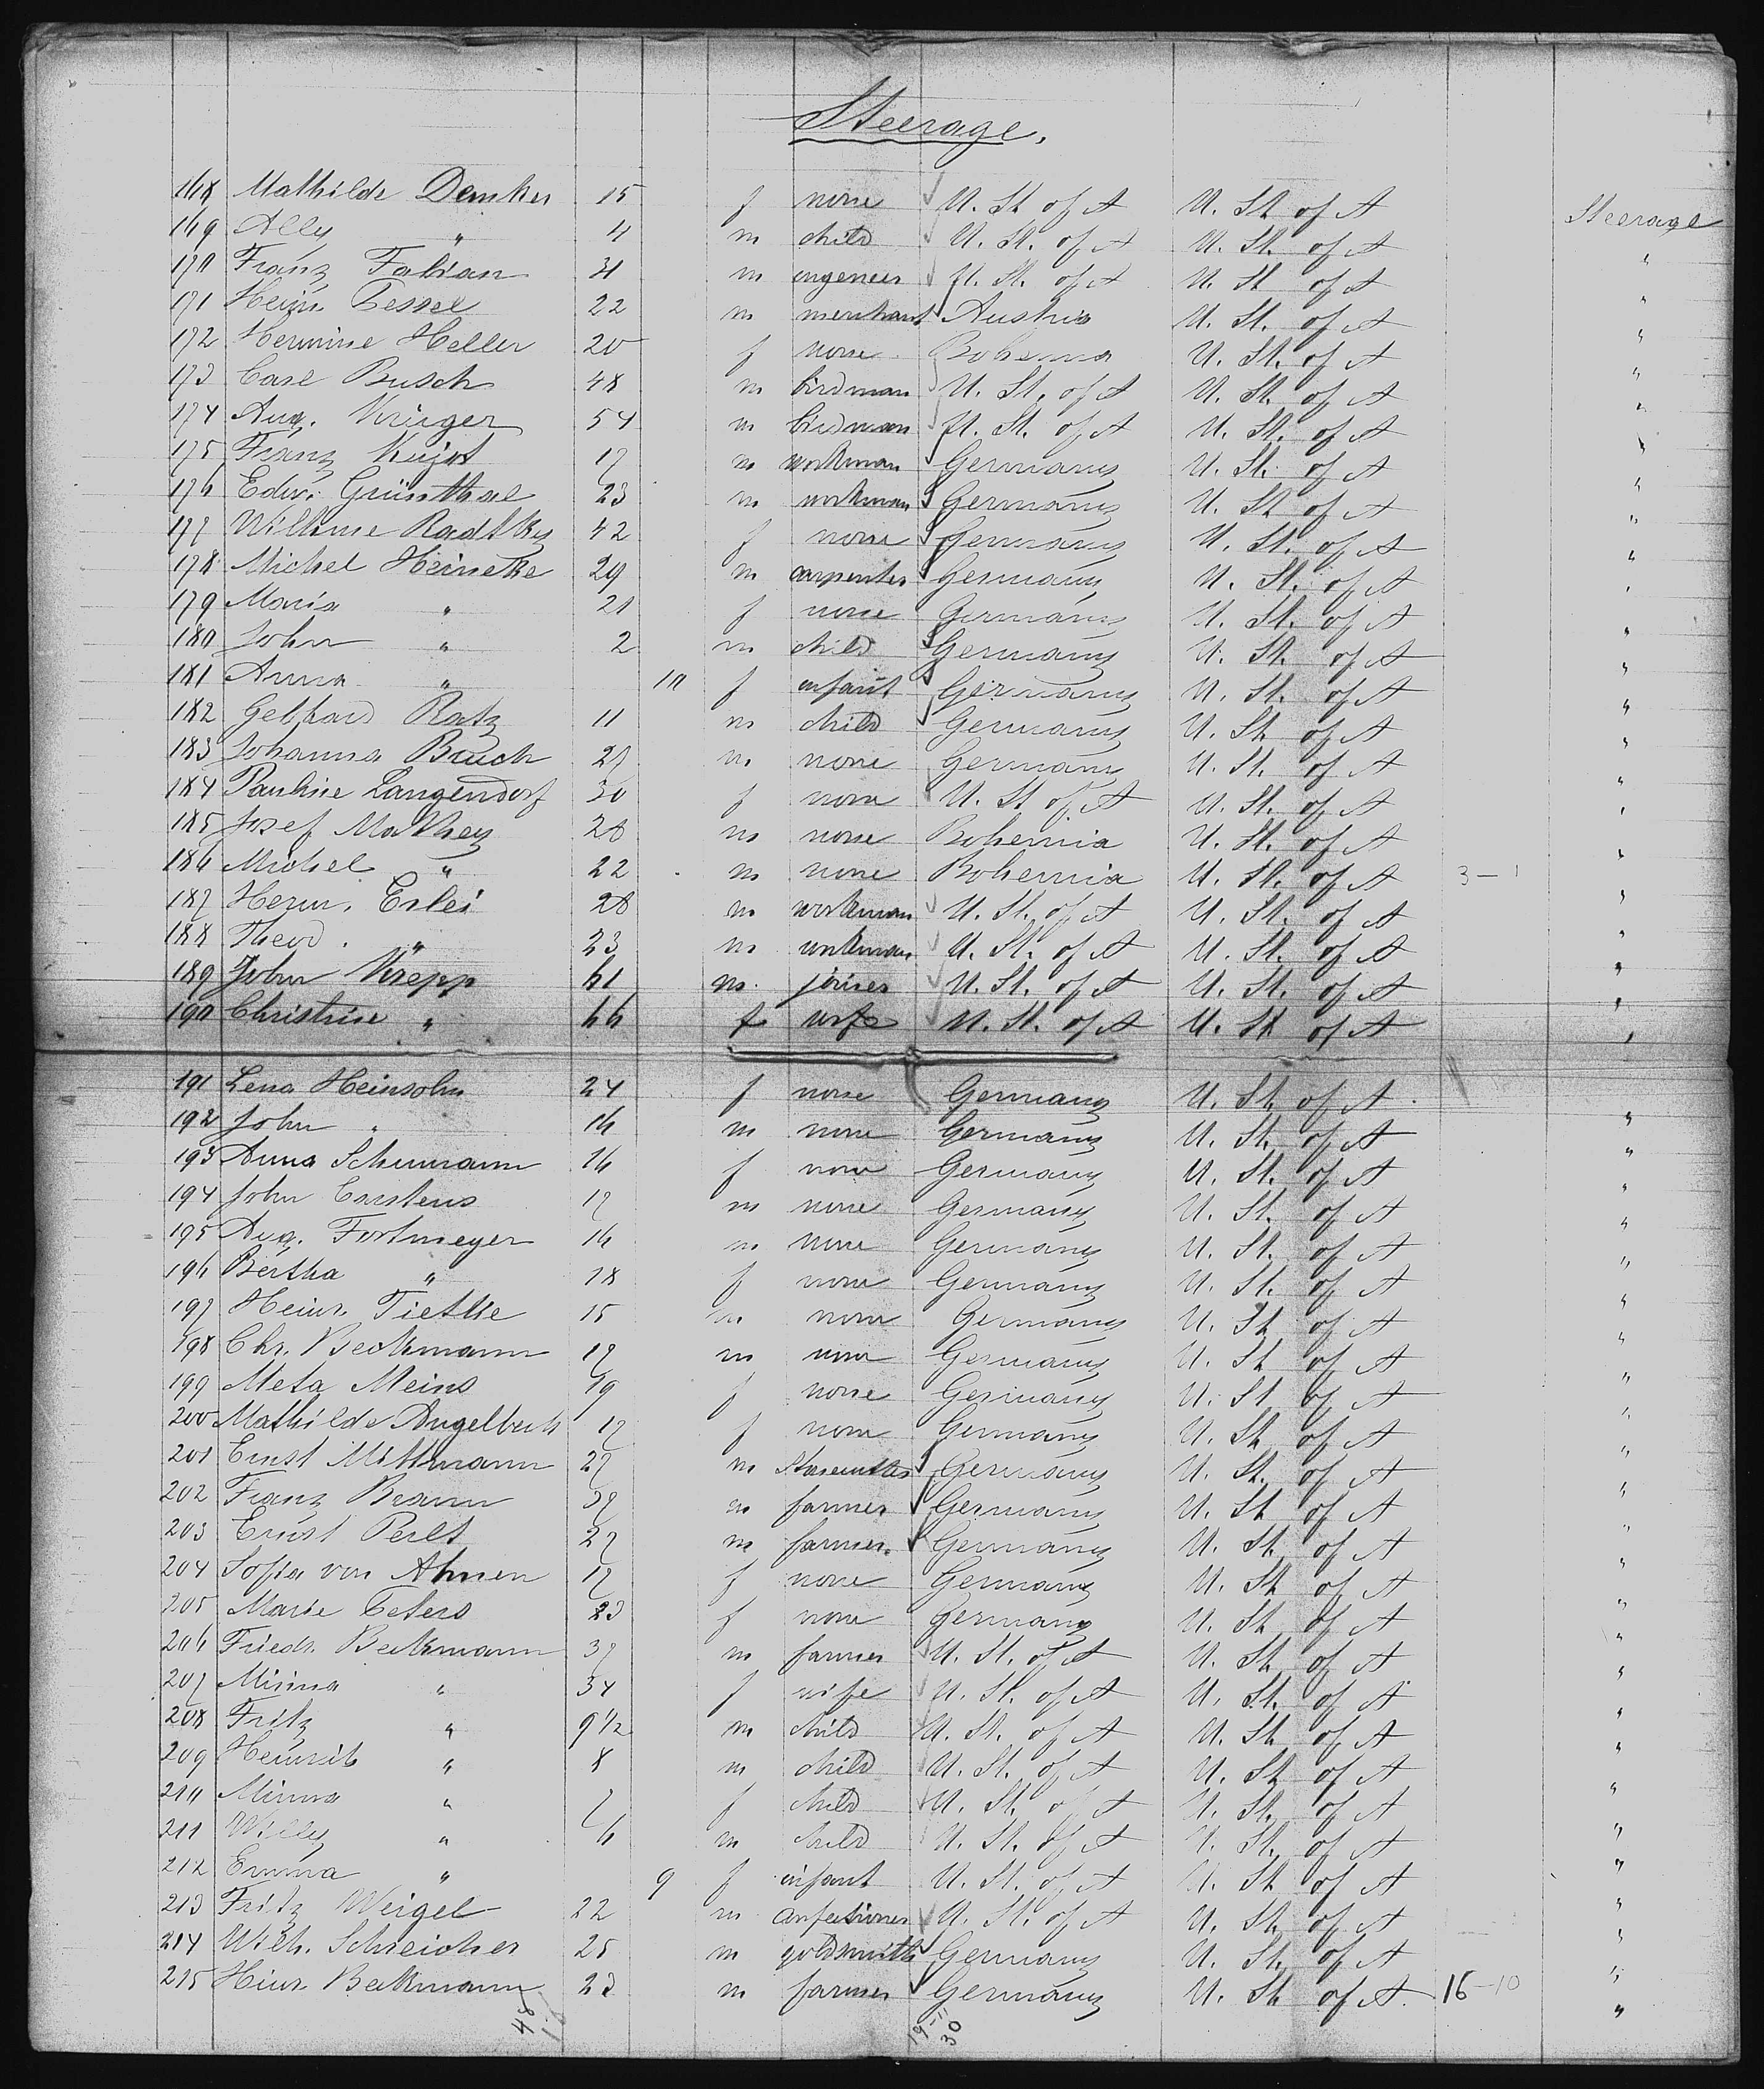 Steerage.
168 Mathilde Demker 15 f none U. St of A U. St of A Steerage
169 Ally " 4 m child U. St. of A U. St. of A "
170 Franz Fabian 31 m engeneer U. St. of A U. St of A "
171 Heinr. Bessel 22 m merchant Austria U. St. of A "
172 Hermine Heller 20 f none Bohemia U. St. of A "
173 Carl Busch 48 m birdman U. St. of A U. St. of A "
174 Aug. Krüger 54 m birdman U. St. of A U. St. of A "
175 Franz Kujot 17 m workman Germany U. St. of A "
176 Edw. Grünthal 23 m workman Germany U. St of A "
177 Wilhme Radtky 42 f none Germany U. St. of A "
178 Michel Heineke 29 m carpenter Germany U. St. of A "
179 Maria " 21 f none Germany U. St. of A "
180 John " 2 m child Germany U. St. of A "
181 Anna " 10 f infant Germany U. St. of A "
182 Gebhard Ratz 11 m child Germany U. St of A "
183 Johanna Bruch 27 m none Germany U. St. of A "
184 Pauline Langendorf 30 f none U. St of A U. St. of A "
185 Josef Mathey 28 m none Bohemia U. St. of A "
186 Michel " 22 m none Bohemia U. St. of A 3-1 "
187 Herm. Erlei 28 m workman U. St. of A U. St. of A "
188 Theod. " 23 m workman U. St. of A U. St. of A "
189 John Krepp 61 m. joiner U. St. of A U. St. of A "
190 Christine " 66 f wife U. St. of A U. St of A "
191 Lena Heinsohn 24 f none Germany U. St of A "
192 John " 16 m none Germany U. St. of A "
193 Anna Schumann 16 f none Germany U. St. of A "
194 John Carstens 17 m none Germany U. St. of A "
195 Aug. Fortmeyer 16 m none Germany U. St. of A "
196 Bertha " 18 f none Germany U. St. of A "
197 Heinr. Tietke 15 m none Germany U. St of A "
198 Chr. Beckmann 17 m none Germany U. St of A "
199 Meta Meins 19 f none Germany U. St of A "
200 Mathilde Angelbeck 17 f none Germany U. St of A "
201 Ernst Mittmann 27 m Germany U. St. of A "
202 Franz Braun 37 m farmer Germany U. St of A "
203 Ernst Perlt 27 m farmer. Germany U. St. of A "
204 Sofia von Ahnen 17 f none Germany U. St of A "
205 Marie Peters 23 f none Germany U. St of A "
206 Friedr. Beckmann 37 m farmer U. St. of A U. St of A "
207 Minna " 34 f wife U. St. of A U. St. of A "
208 Fritz " 9 1/2 m child U. St. of A U. St of A "
209 Heinrik " 8 m child U. St. of A U. St of A "
210 Minna " 7 f child U. St. of A U. St. of A "
211 Willy " 6 m child U. St. of A U. St. of A "
212 Emma " 9 f infant U. St. of A U. St of A "
213 Fritz Weigel 22 m confectioner U. St. of A U. St. of A "
214 Wilh. Schreicher 25 m goldsmith Germany U. St. of A "
215 Hinr. Beckmann 23 m farmer Germany U. St of A. 16-10 "
48 19-11
30